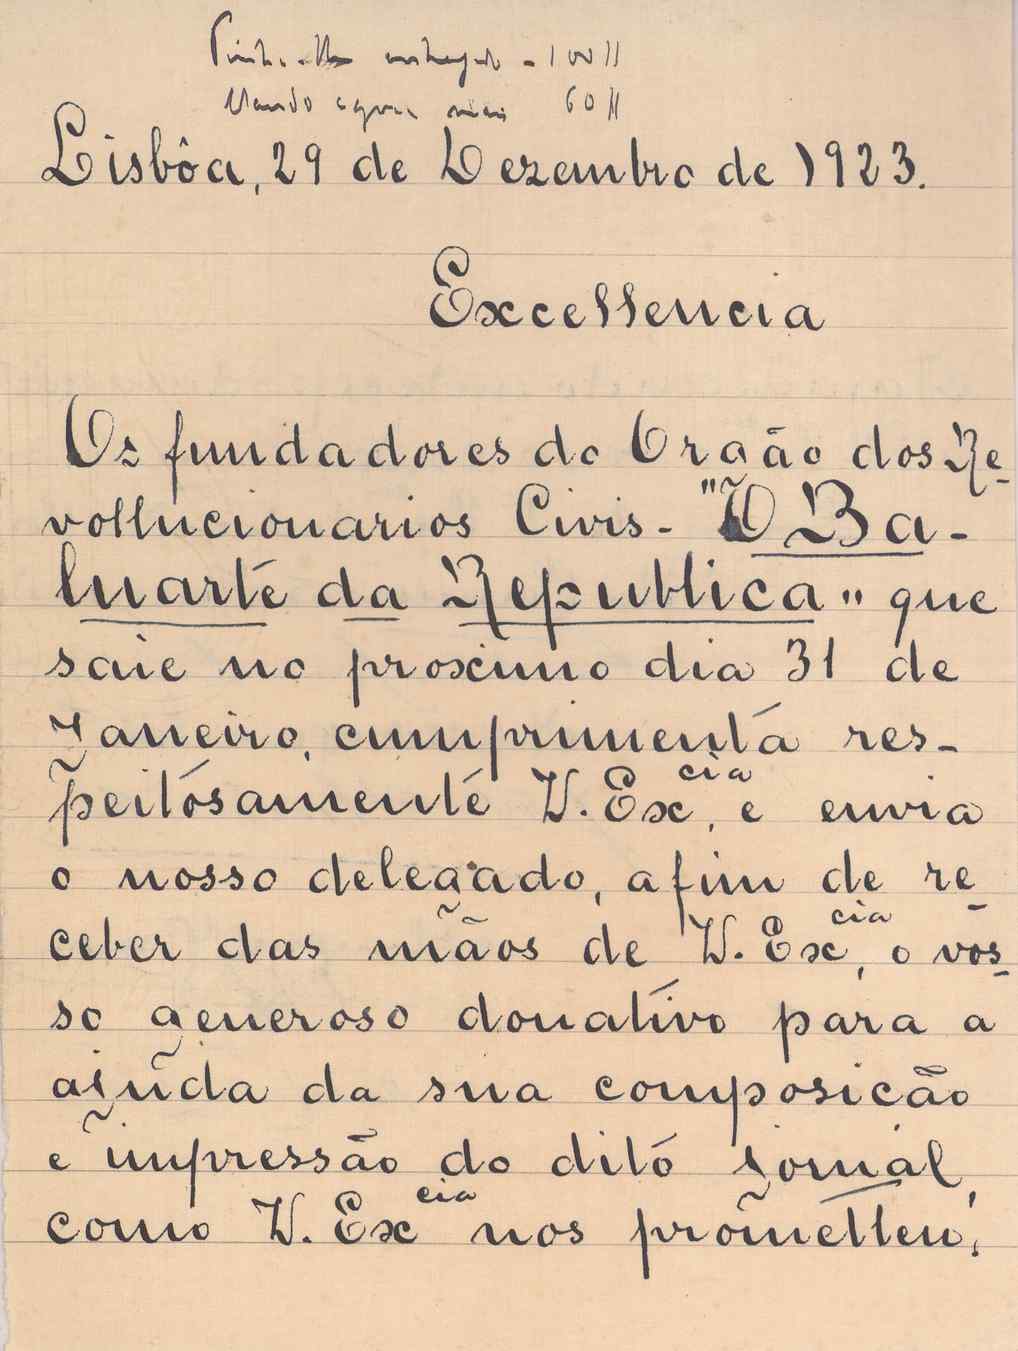 100$
Mando agora mais 60$
Lisbôa, 29 de Dezembro de 1923.
Excellencia
Os fundadores do Orgão dos Re-
vollucionarios Civis - "O Ba-
luarte da Republica" que
saie no proximo dia 31 de
Janeiro, cumprimenta res-
peitosamente V. Ex.cia, e envia
o nosso delegado, afim de re-
ceber das mãos de V. Ex.cia, o vos-
so generoso donativo para a
ajuda da sua composicão
e impressão do dito jornal,
como V. Excia nos prometteu.